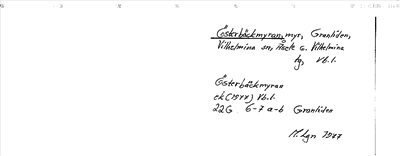 Österbäckmyran, myr, Granliden,
Vilhelmina sn, Åsele o. Vilhelmina
tg, Vb.l.
Österbäckmyran
ek (1977) Vb.l.
22G 6-7 a-b Granliden
M. Lgn 1977